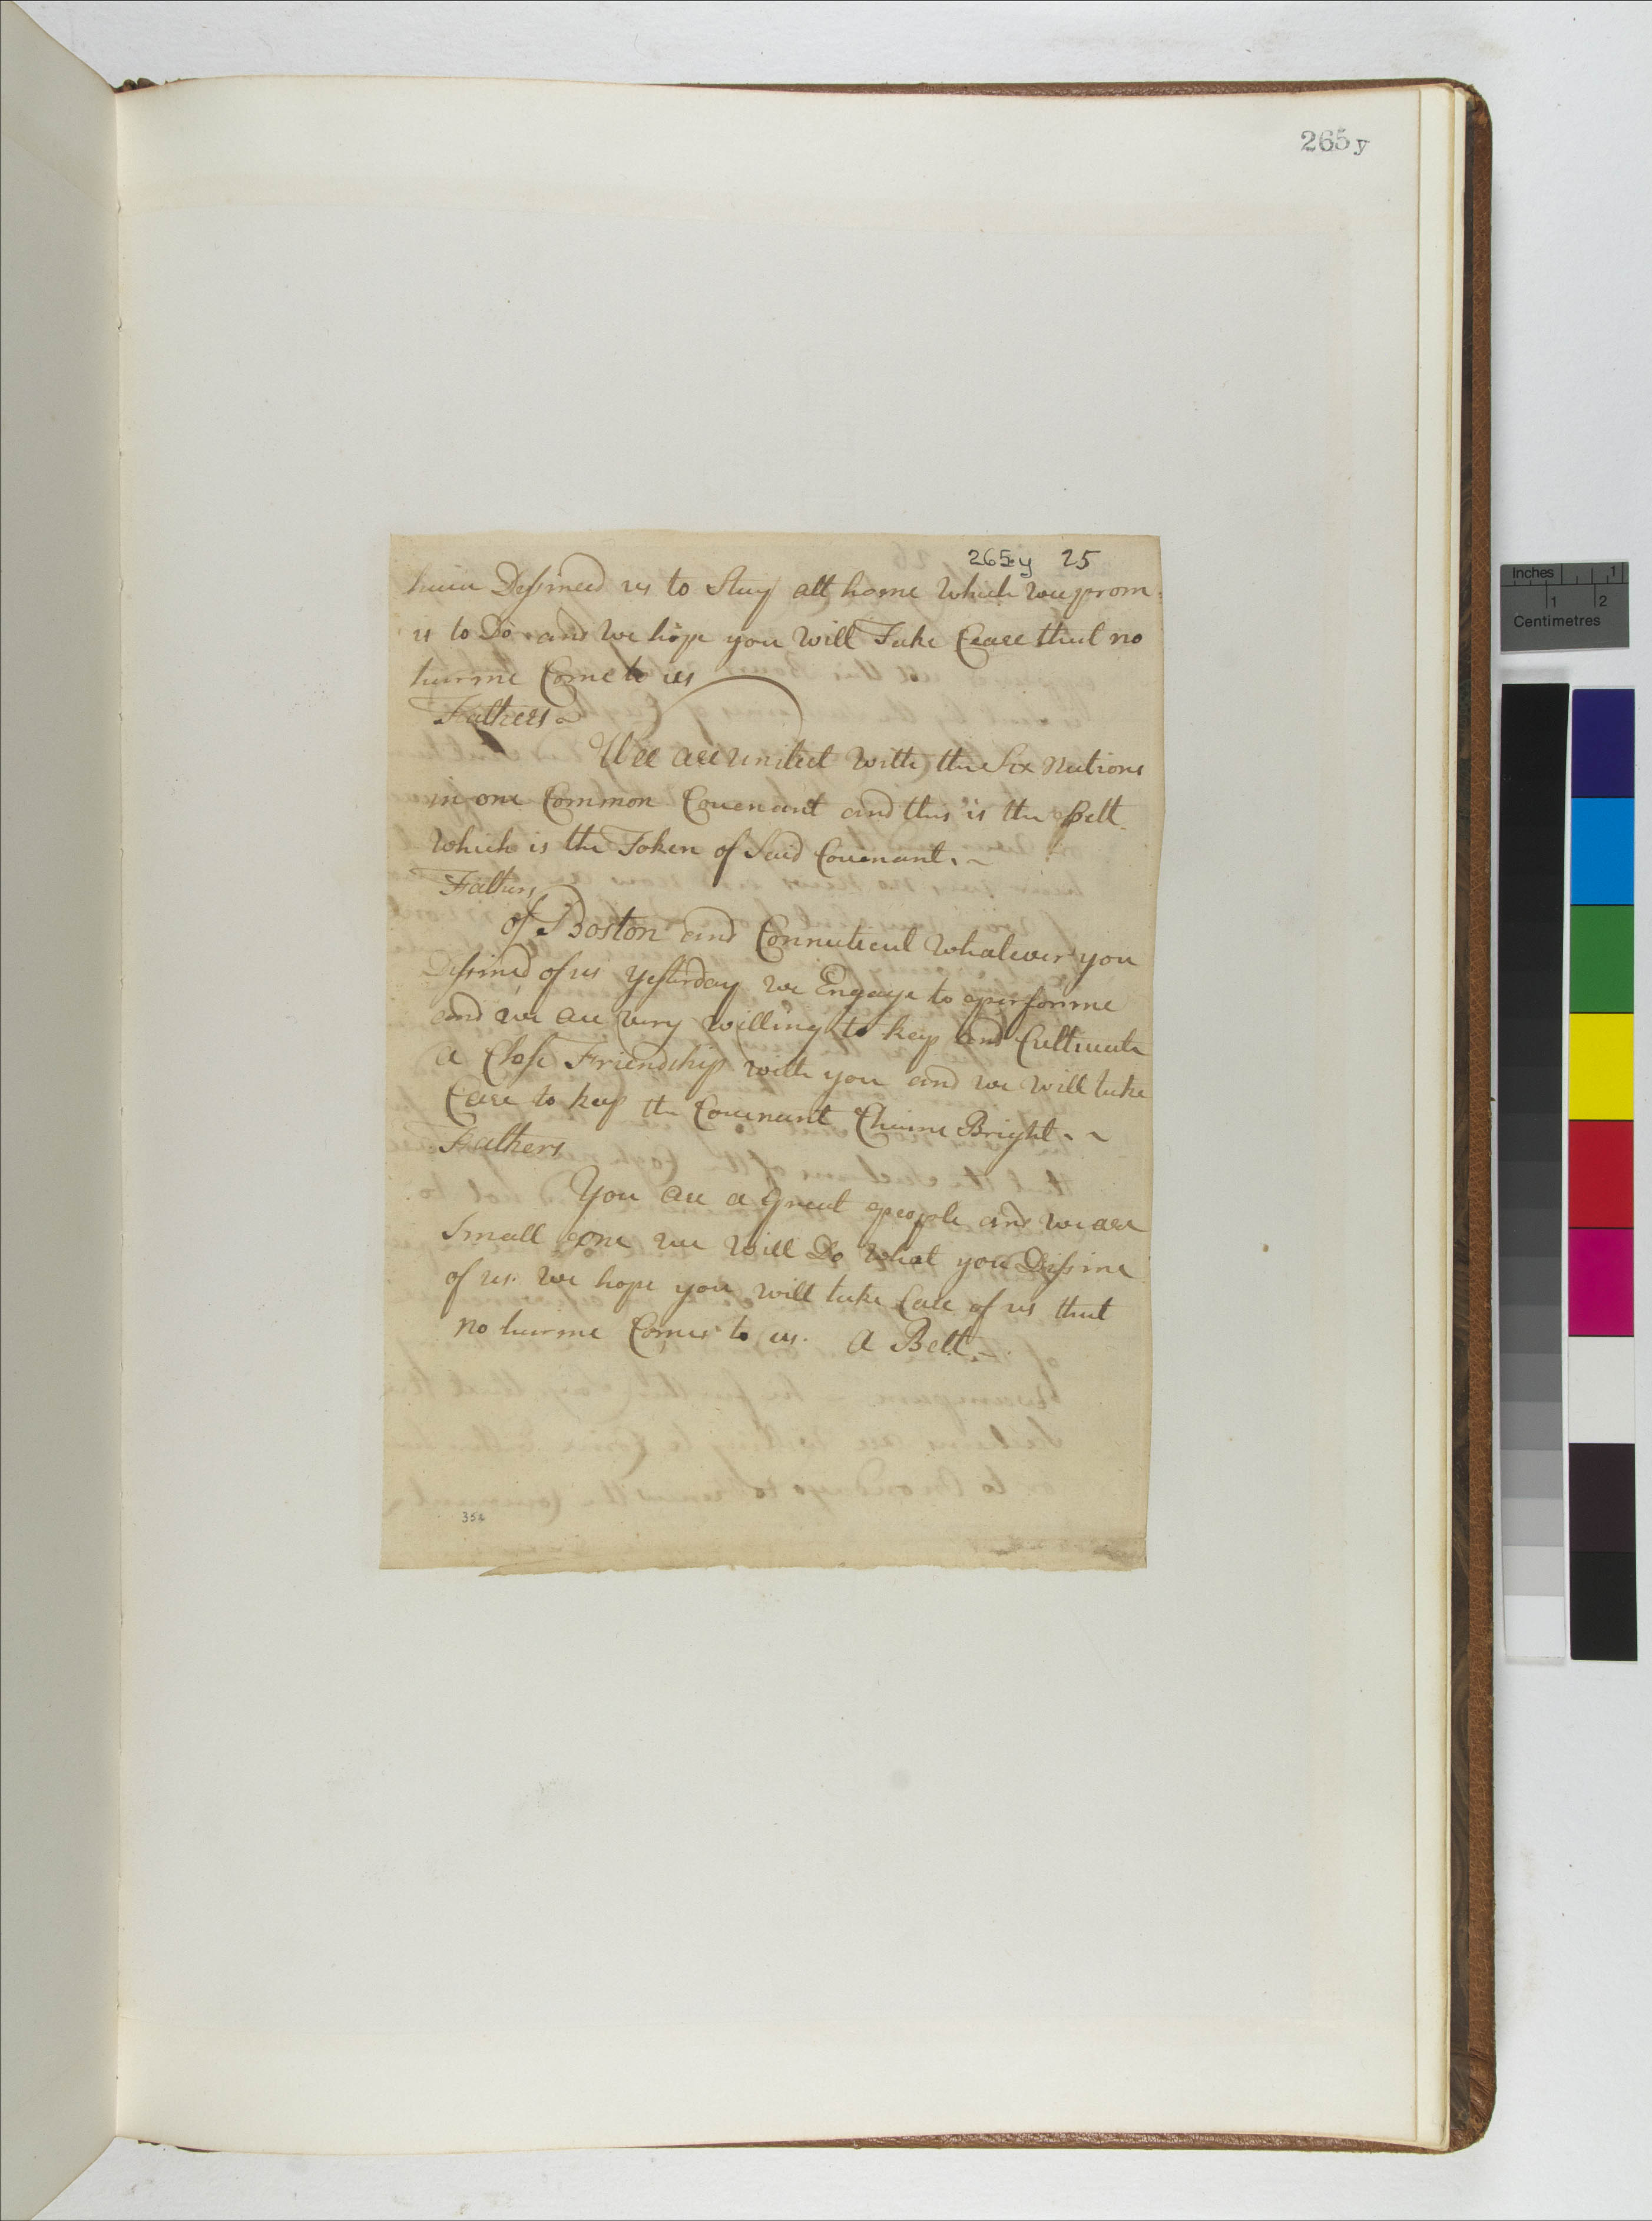 265y
265y 25
haue Dessired us to Stay att home which wee prom=
is to Do and we hope you will Take Ceare that no
harme Come to us
Fathers
Wee are united with the Six Nations
in one Common Couenant and this is the Belt
which is the Token of Said Couenant.
Fathers
of Boston and Connuticut whatever you
Dessired of us yesterday we Engage to performe
and we are very willing to keep and Cultivate
a Close Friendship with you and we will take
Care to keep the Couenant Chaine Bright
Fathers
You are a great people and we are
Small one we will Do what you Dessire
of us. we hope you will take Care of us that
no harme Comes to us. A Belt
Inches 1
1 2
Centimetres